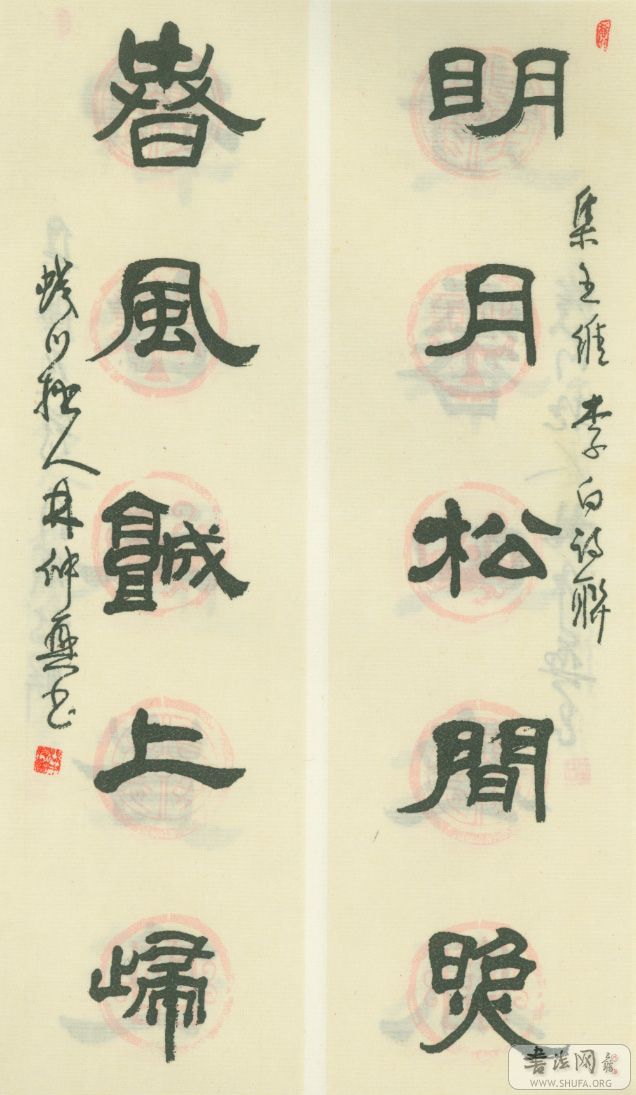 集王維李白詩聯
明月松間照
春風城上歸
蛟川人林仲興書
書法网
WWW.SHUFA.ORG